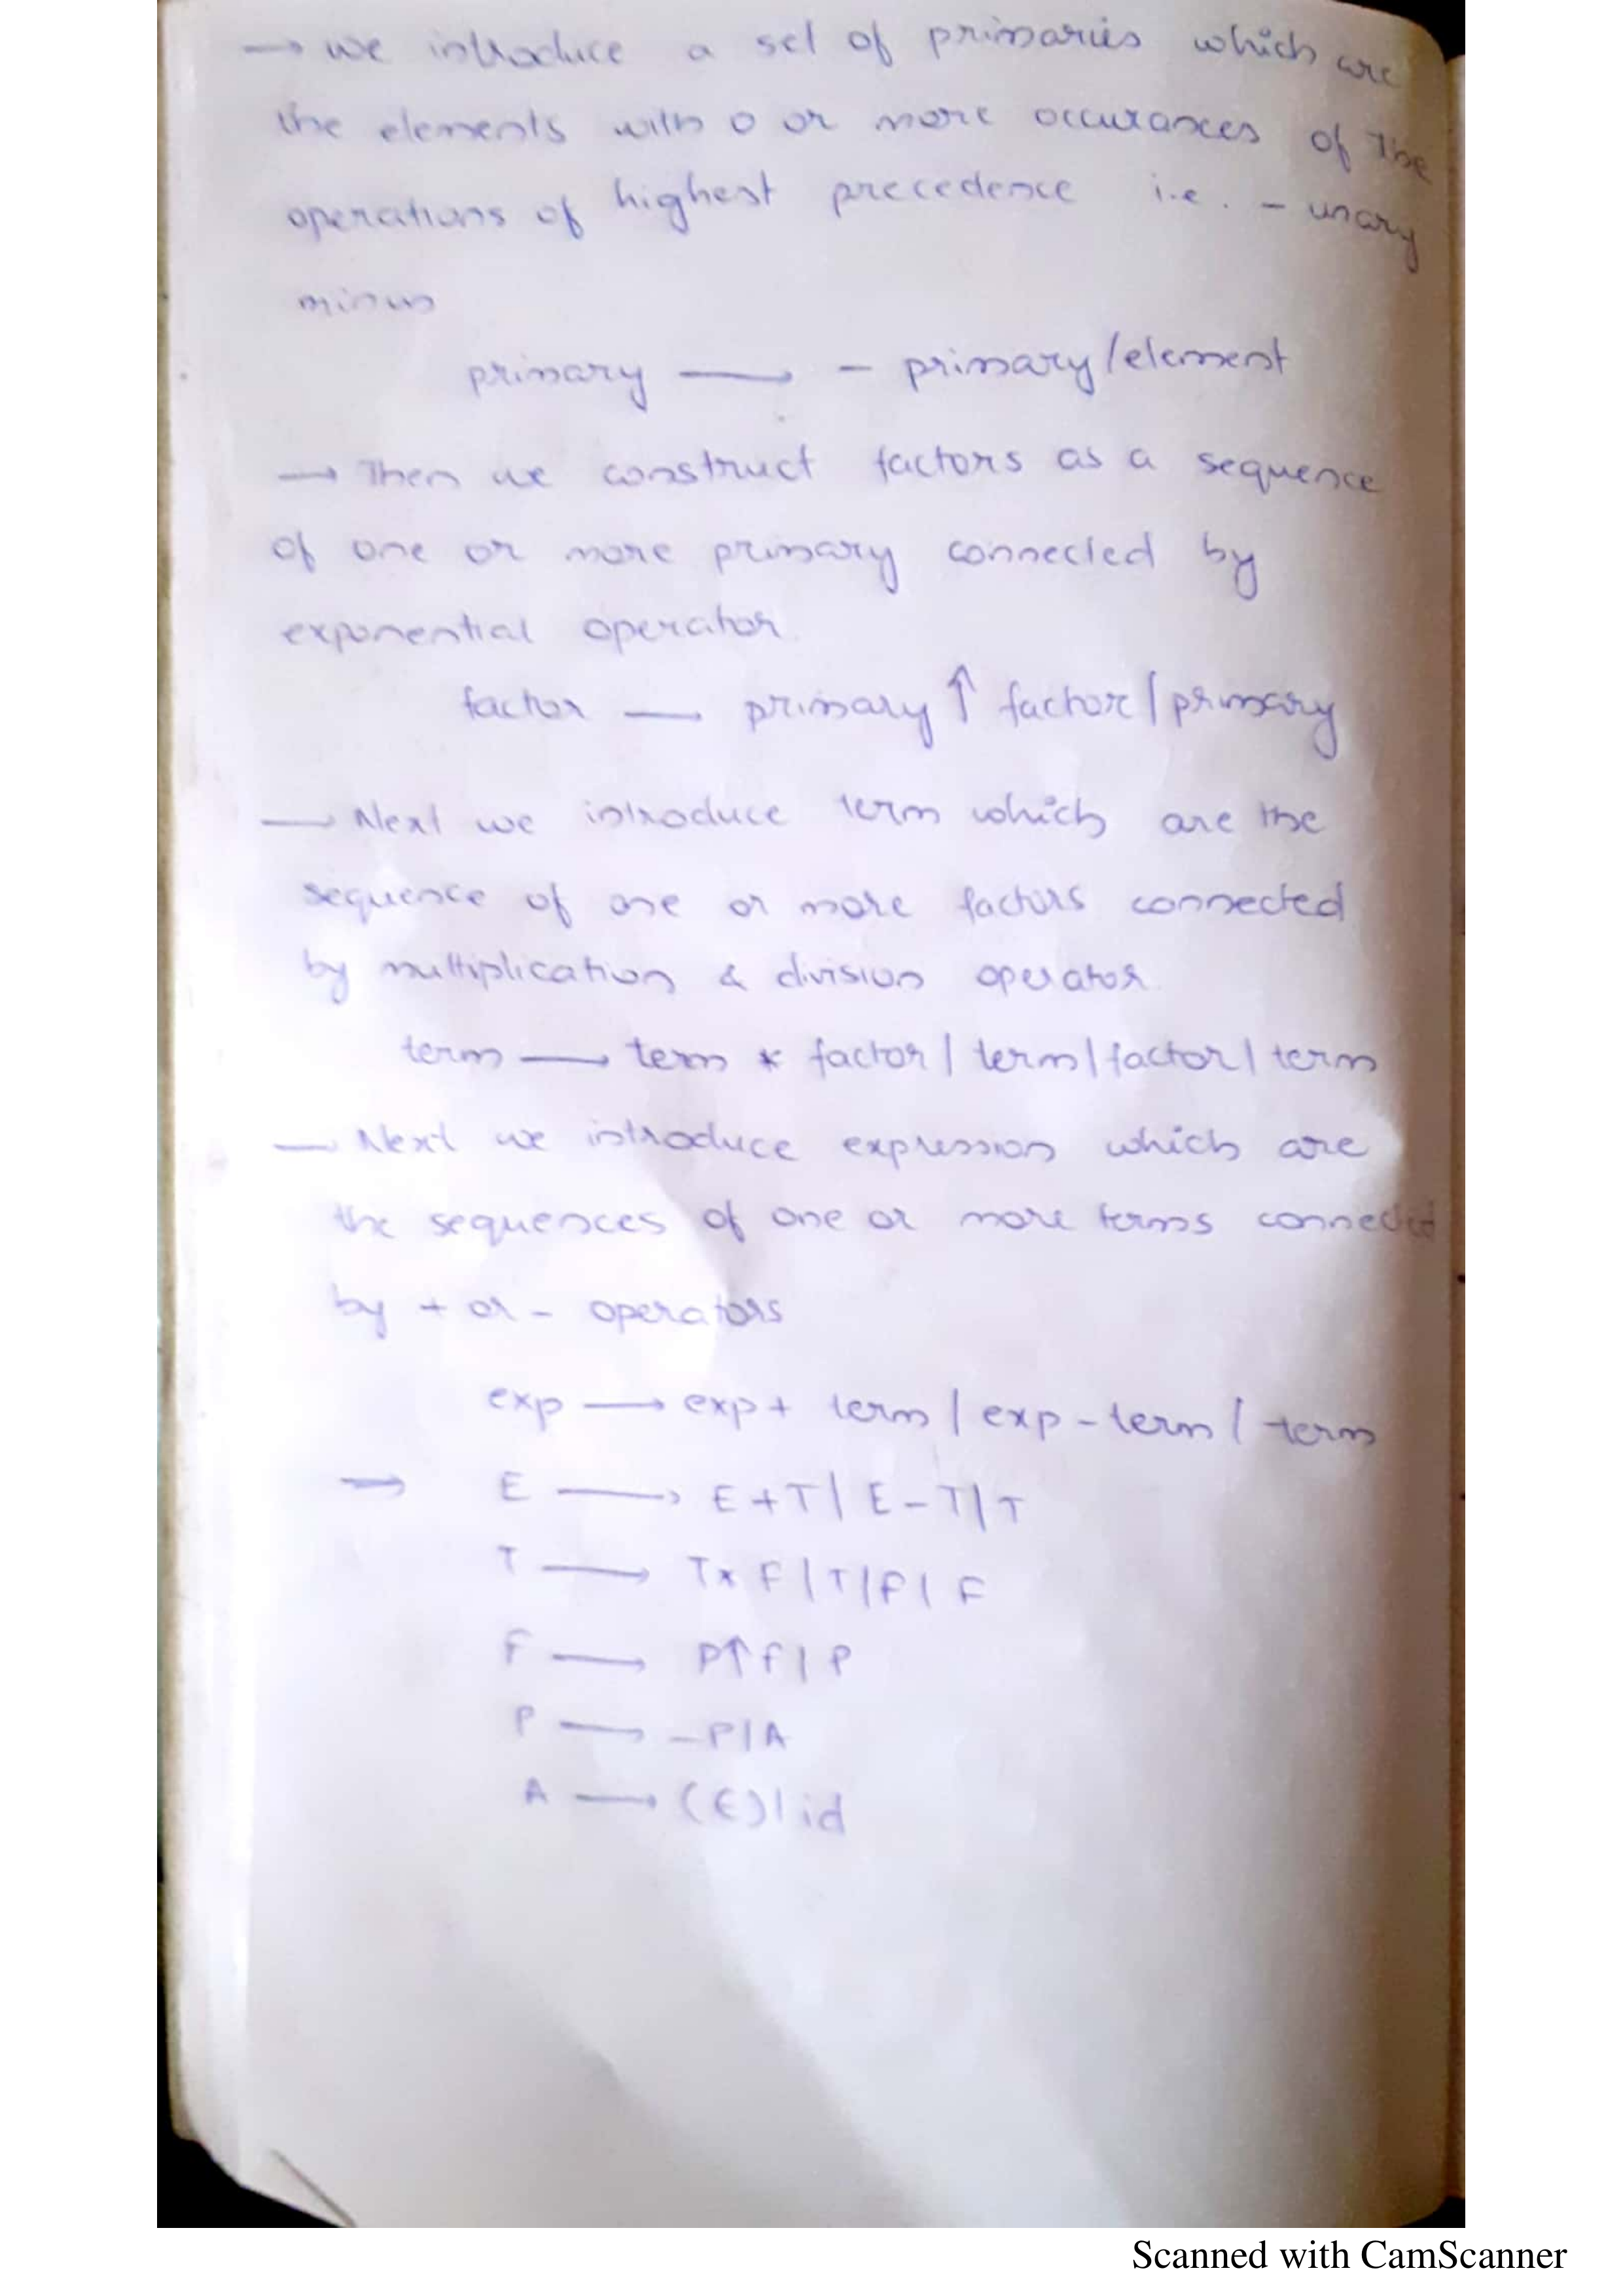 → we introduce a set of primaries which are
the elements with 0 or more occurances of the
operations of highest precedence i.e. - unary
minus
primary → - primary/element
→ Then we construct factors as a sequence
of one or more primary connected by
exponential operator.
factor — primary ↑ factor / primary
— Next we introduce term which are the
sequence of one or more factors connected
by multiplication & division operator.
term → term * factor | term | factor | term
— Next we introduce expression which are
the sequences of one or more terms connected
by + or - operators
exp → exp + term | exp - term | term
→ E → E + T | E - T | T
T → T * F | T / F | F
F → P ↑ F | P
P → - P | A
A → (E) | id
Scanned with CamScanner